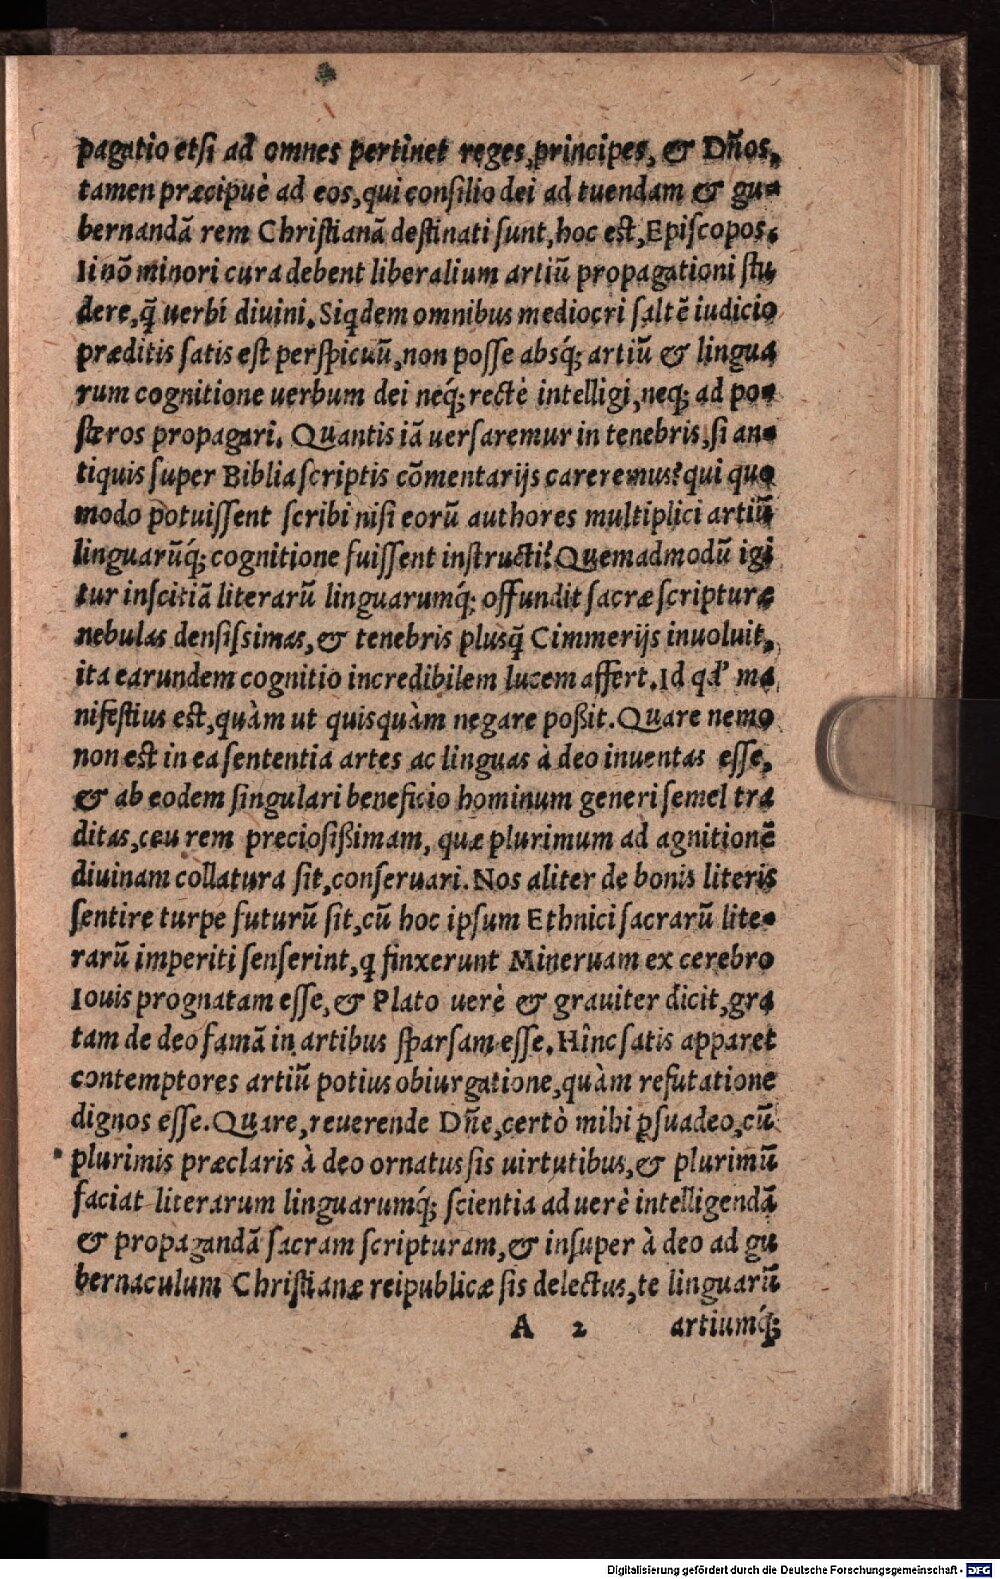 pagatio etſi ad omnes pertinet reges, principes, & Dños,
tamen præcipuè ad eos, qui conſilio dei ad tuendam & gu-
bernandã rem Chriſtianã deſtinati ſunt, hoc eſt, Epiſcopos.
Ii nõ minori cura debent liberalium artiũ propagationi ſtu
dere, q̃ uerbi diuini. Siqdem omnibus mediocri ſaltẽ iudicio
præditis ſatis eſt perſpicuũ, non poſſe absq́; artiũ & lingua
rum cognitione uerbum dei neq́; rectè intelligi, neq; ad po-
ſteros propagari. Quantis iã uerſaremur in tenebris, ſi an-
tiquis ſuper Biblia ſcriptis cõmentarijs careremus? qui quo
modo potuiſſent ſcribi niſi eorũ authores multiplici artiũ
linguarũq́; cognitione fuiſſent inſtructi? Quemadmodũ igi
tur inſcitiã literarũ linguarumq́; offundit ſacræ ſcripturæ
nebulas denſiſsimas, & tenebris plusq̃ Cimmerijs inuoluit,
ita earundem cognitio incredibilem lucem affert. Id qd' ma
nifeſtius eſt, quàm ut quisquàm negare poßit. Quare nemo
non eſt in ea ſententia artes ac linguas à deo inuentas eſſe,
& ab eodem ſingulari beneficio hominum generi ſemel tra
ditas, ceu rem precioſißimam, quæ plurimum ad agnitionẽ
diuinam collatura ſit, conſeruari. Nos aliter de bonis literis
ſentire turpe futurũ ſit, cũ hoc ipſum Ethnici ſacrarũ lite-
rarũ imperiti ſenſerint, q finxerunt Mineruam ex cerebro
Iouis prognatam eſſe, & Plato uerè & grauiter dicit, gra
tam de deo famã in artibus ſparſam eſſe. Hînc ſatis apparet
contemptores artiũ potius obiurgatione, quàm refutatione
dignos eſſe. Quare, reuerende Dñe, certò mihi ꝑſuadeo, cũ
plurimis præclaris à deo ornatus ſis uirtutibus, & plurimũ
faciat literarum linguarumq́; ſcientia ad uerè intelligendã
& propagandã ſacram ſcripturam, & inſuper à deo ad gu
bernaculum Chriſtianæ reipublicæ ſis delectus, te linguarũ
A 2 artiumq́;
Digitalisierung gefördert durch die Deutsche Forschungsgemeinschaft - DFG